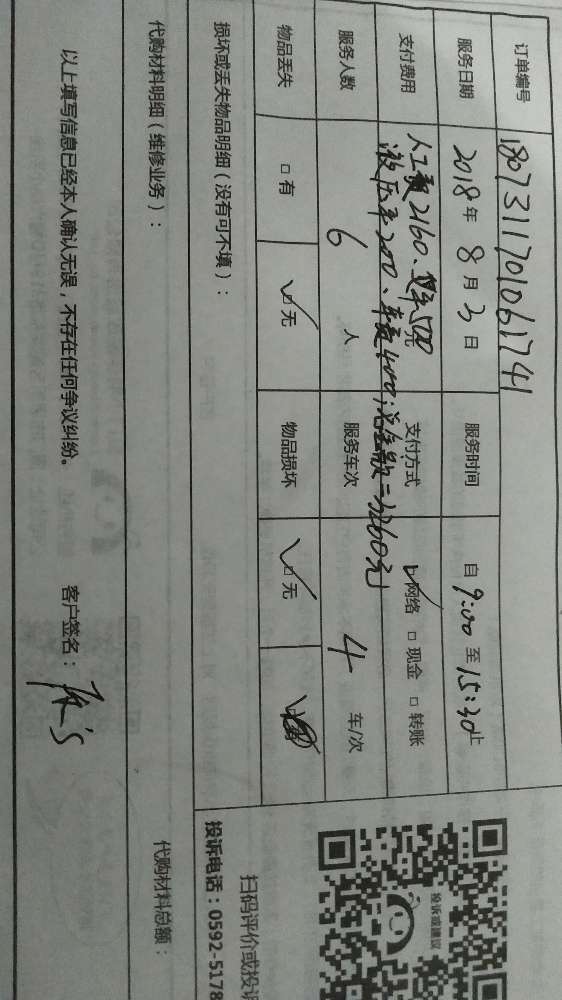 订单编号 180731170106174 1
服务日期 2018年 8月 3日 服务时间 自 9:00 至 15:30 止
支付费用 人工费2160、 500元 支付方式 网络 □ 现金 □ 转账
液压车200、车费400;总金额=3260元
服务人数 6 人 服务车次 4 车/次
物品丢失 □ 有 □ 无 物品损坏 □ 无
损坏或丢失物品明细(没有可不填):
代购材料明细(维修业务): 代购材料总额:
以上填写信息已经本人确认无误,不存在任何争议纠纷。 客户签名:
投诉或建议
扫码评价或投诉
投诉电话:0592-5178